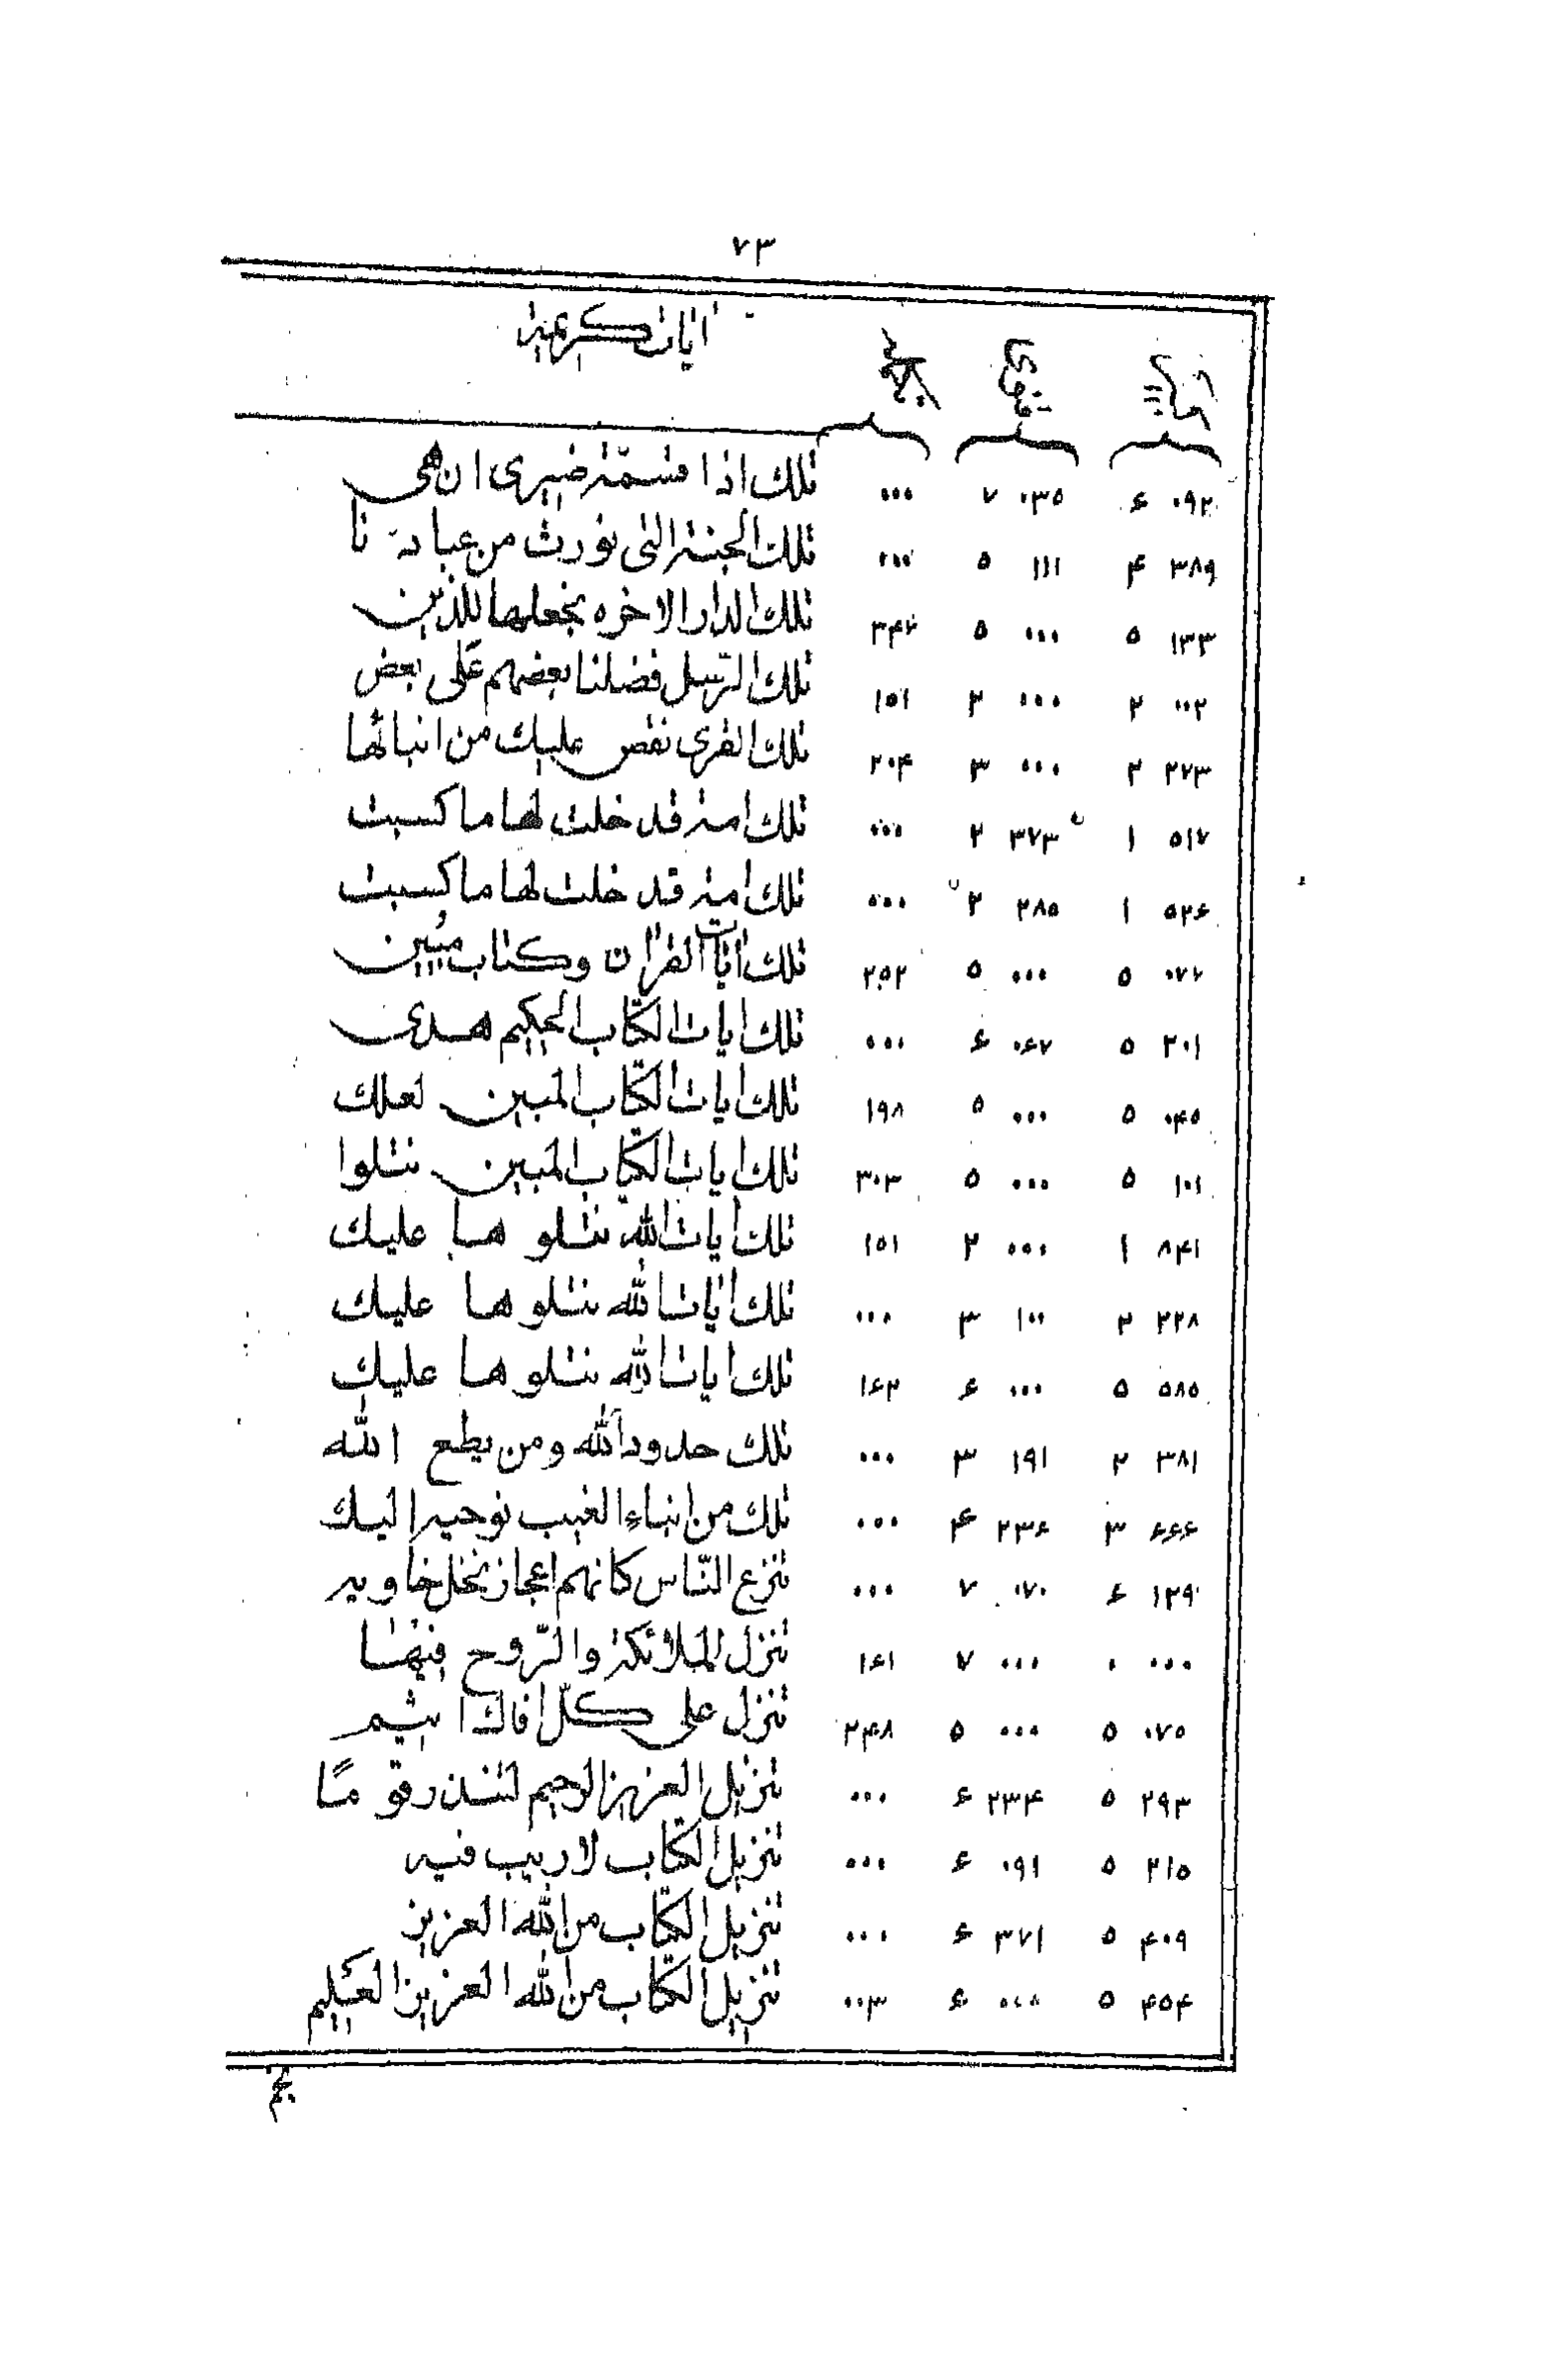 ۷۳
ایات کریمه
۰۹۲ ۶ ۰۳۵ ۷ ۰۰۰ تلك اذا قسمة ضیزی ان هی
۳۸۹ ۴ ۱۱۱ ۵ ۰۰۰ تلك الجنة التی نورث من عباد نا
۱۳۳ ۵ ۰۰۰ ۵ ۳۴۲ تلك الدار الاخره نجعلها للذین
۰۰۲ ۲ ۰۰۰ ۲ ۱۵۱ تلك الرّسل فضلنا بعضهم عَلی بعض
۲۷۳ ۲ ۰۰۰ ۳ ۲۰۴ تلك القری نقص علیك من انبائها
۵۱۷ ۱ ۳۷۳ ۲ ۰۰۰ تلك امة قد خلت لها ما کسبت
۵۲۶ ۱ ۲۸۵ ۲ ۰۰۰ تلك امة قد خلت لها ما کسبت
۰۷۲ ۵ ۰۰۰ ۵ ۲۵۲ تلك ایات القران وکتاب مُبین
۲۰۱ ۵ ۰۶۷ ۶ ۰۰۰ تلك ایات الکتاب الحکیم هدی
۰۴۵ ۵ ۰۰۰ ۵ ۱۹۸ تلك ایات الکتاب المبین لعلك
۱۰۱ ۵ ۰۰۰ ۵ ۳۰۳ تلك ایات الکتاب المبین نتلوا
۸۴۱ ۱ ۰۰۰ ۲ ۱۵۱ تلك ایات الله نتلو ها علیك
۲۲۸ ۲ ۱۰۰ ۳ ۰۰۰ تلك ایات الله نتلو ها علیك
۵۸۵ ۵ ۰۰۰ ۶ ۱۶۲ تلك ایات الله نتلو ها علیك
۳۸۱ ۲ ۱۹۱ ۳ ۰۰۰ تلك حدود الله ومن یطع الله
۶۶۶ ۳ ۲۳۶ ۴ ۰۰۰ تلك من انباء الغیب نوحیها الیك
۱۲۹ ۶ ۰۷۰ ۷ ۰۰۰ تنزع النّاس کانهم اعجاز نخل خاویه
۰۰۰ ۰ ۰۰۰ ۷ ۱۶۱ تنزل الملائکة والرّوح فیها
۰۷۵ ۵ ۰۰۰ ۵ ۲۴۸ تنزل علی کلّ افاك اثیم
۲۹۳ ۵ ۲۳۴ ۶ ۰۰۰ تنزیل العزیز الرحیم لتنذر قومًا
۲۱۵ ۵ ۰۹۱ ۶ ۰۰۰ تنزیل الکتاب لا ریب فیه
۴۰۹ ۵ ۳۷۱ ۶ ۰۰۰ تنزیل الکتاب من الله العزیز
۴۵۴ ۵ ۰۰۸ ۶ ۰۰۳ تنزیل الکتاب من الله العزیز العَلیم